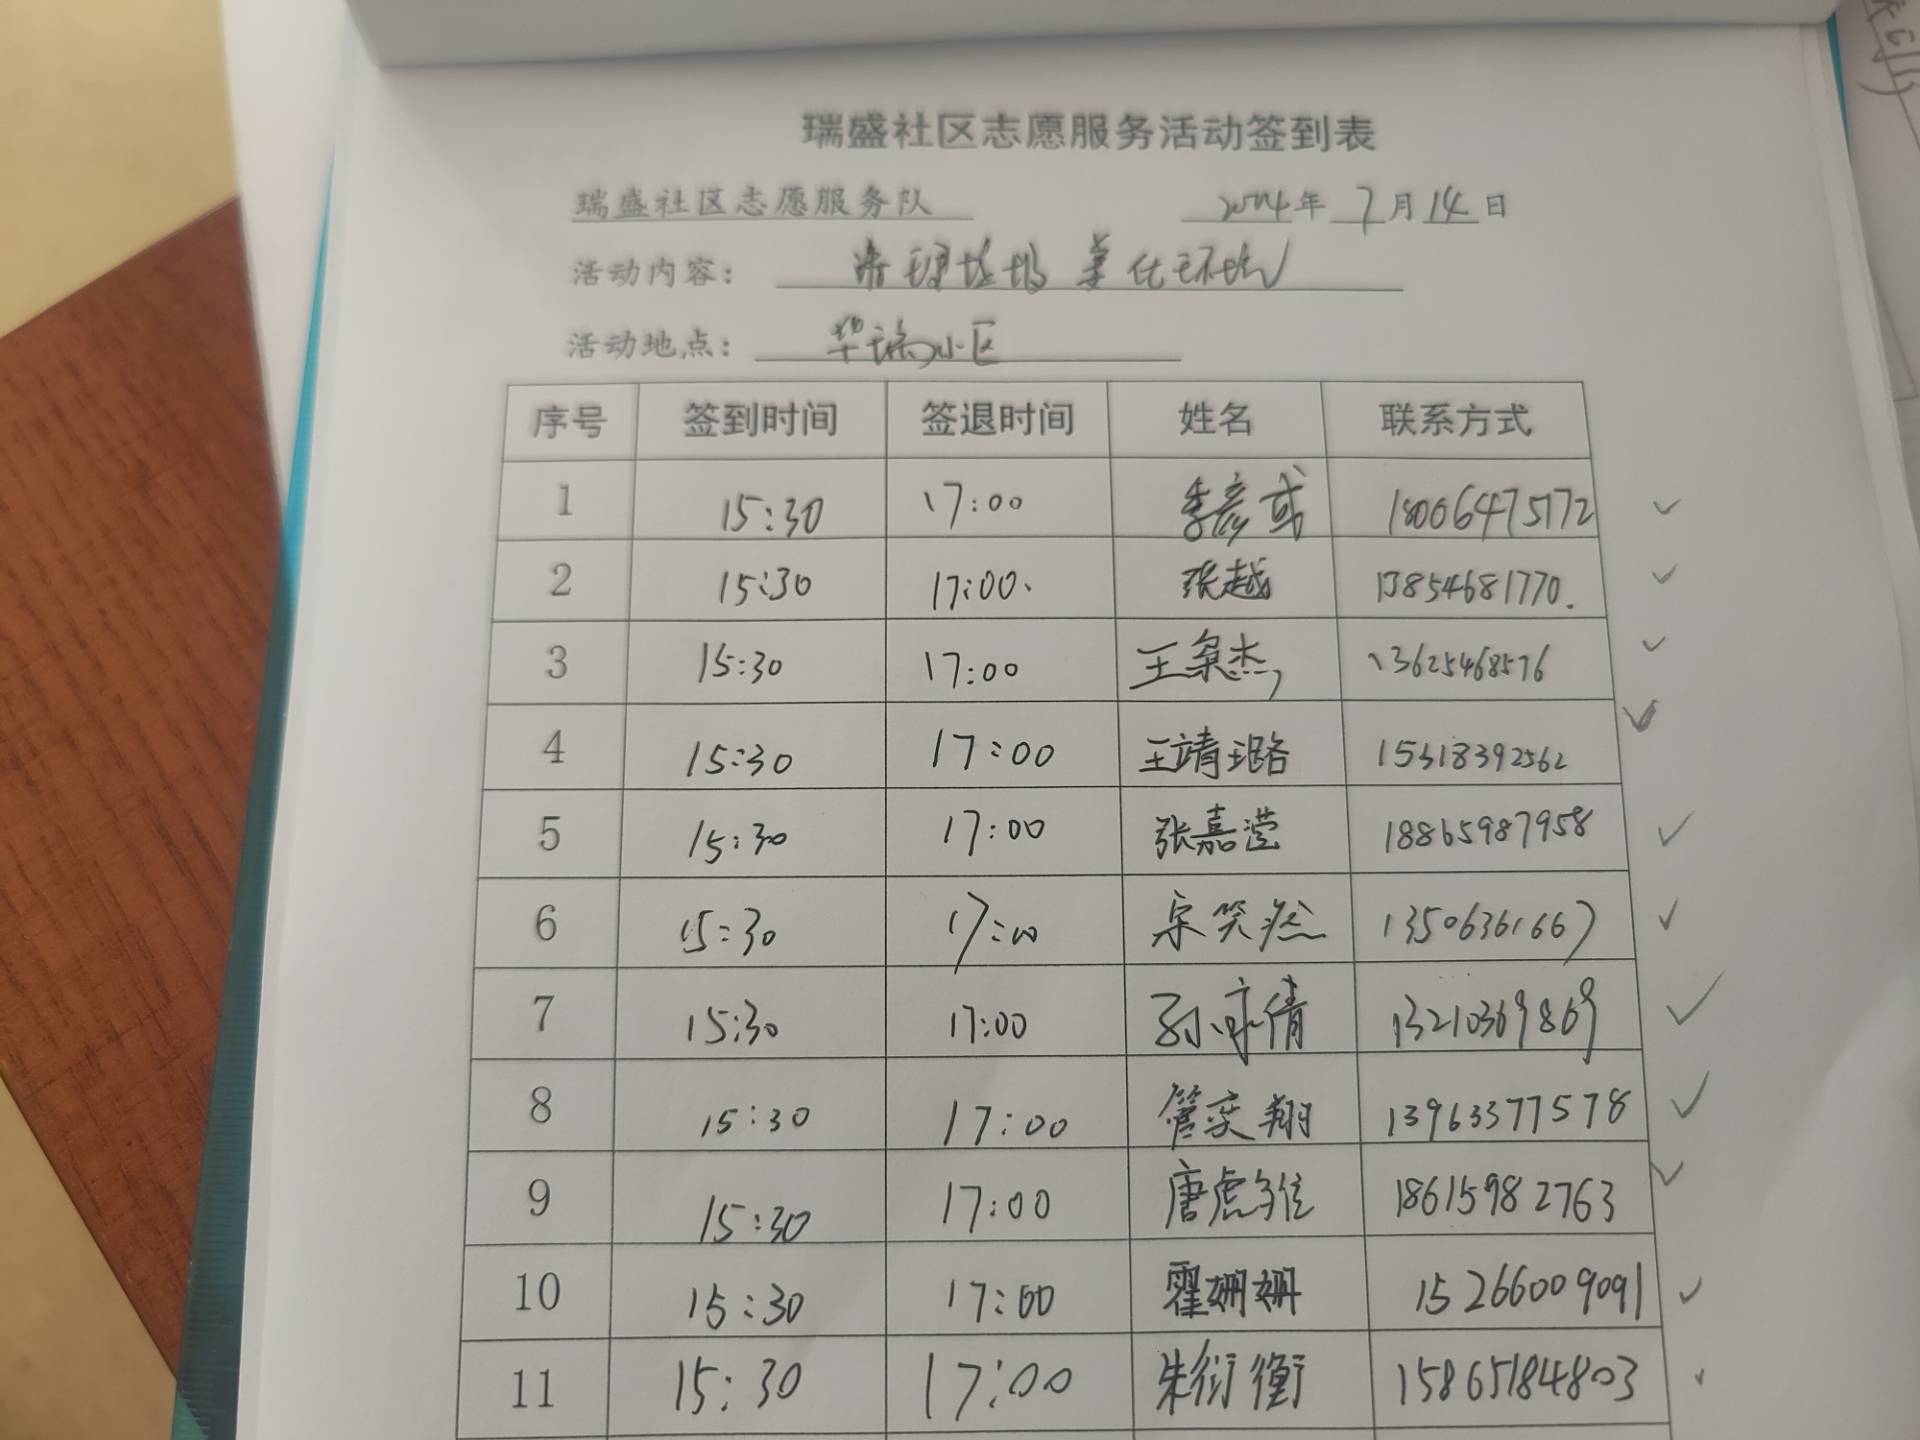 瑞盛社区志愿服务活动签到表
瑞盛社区志愿服务队 2024年 7月14日
活动内容： 清理垃圾 美化环境
活动地点： 华瑞小区
序号 签到时间 签退时间 姓名 联系方式
1 15:30 17:00 李彦 18006475172
2 15:30 17:00. 张越 13854681770.
3 15:30 17:00 王杰 13625468576
4 15:30 17:00 王靖璐 15318392562
5 15:30 17:00 张嘉滢 18865987958
6 15:30 17:00 宋笑然 13506361667
7 15:30 17:00 孙倩 13210369869
8 15:30 17:00 管奕翔 13963377578
9 15:30 17:00 唐虎 18615982763
10 15:30 17:00 霍姗姗 15266009091
11 15:30 17:00 朱衍衡 15865184803